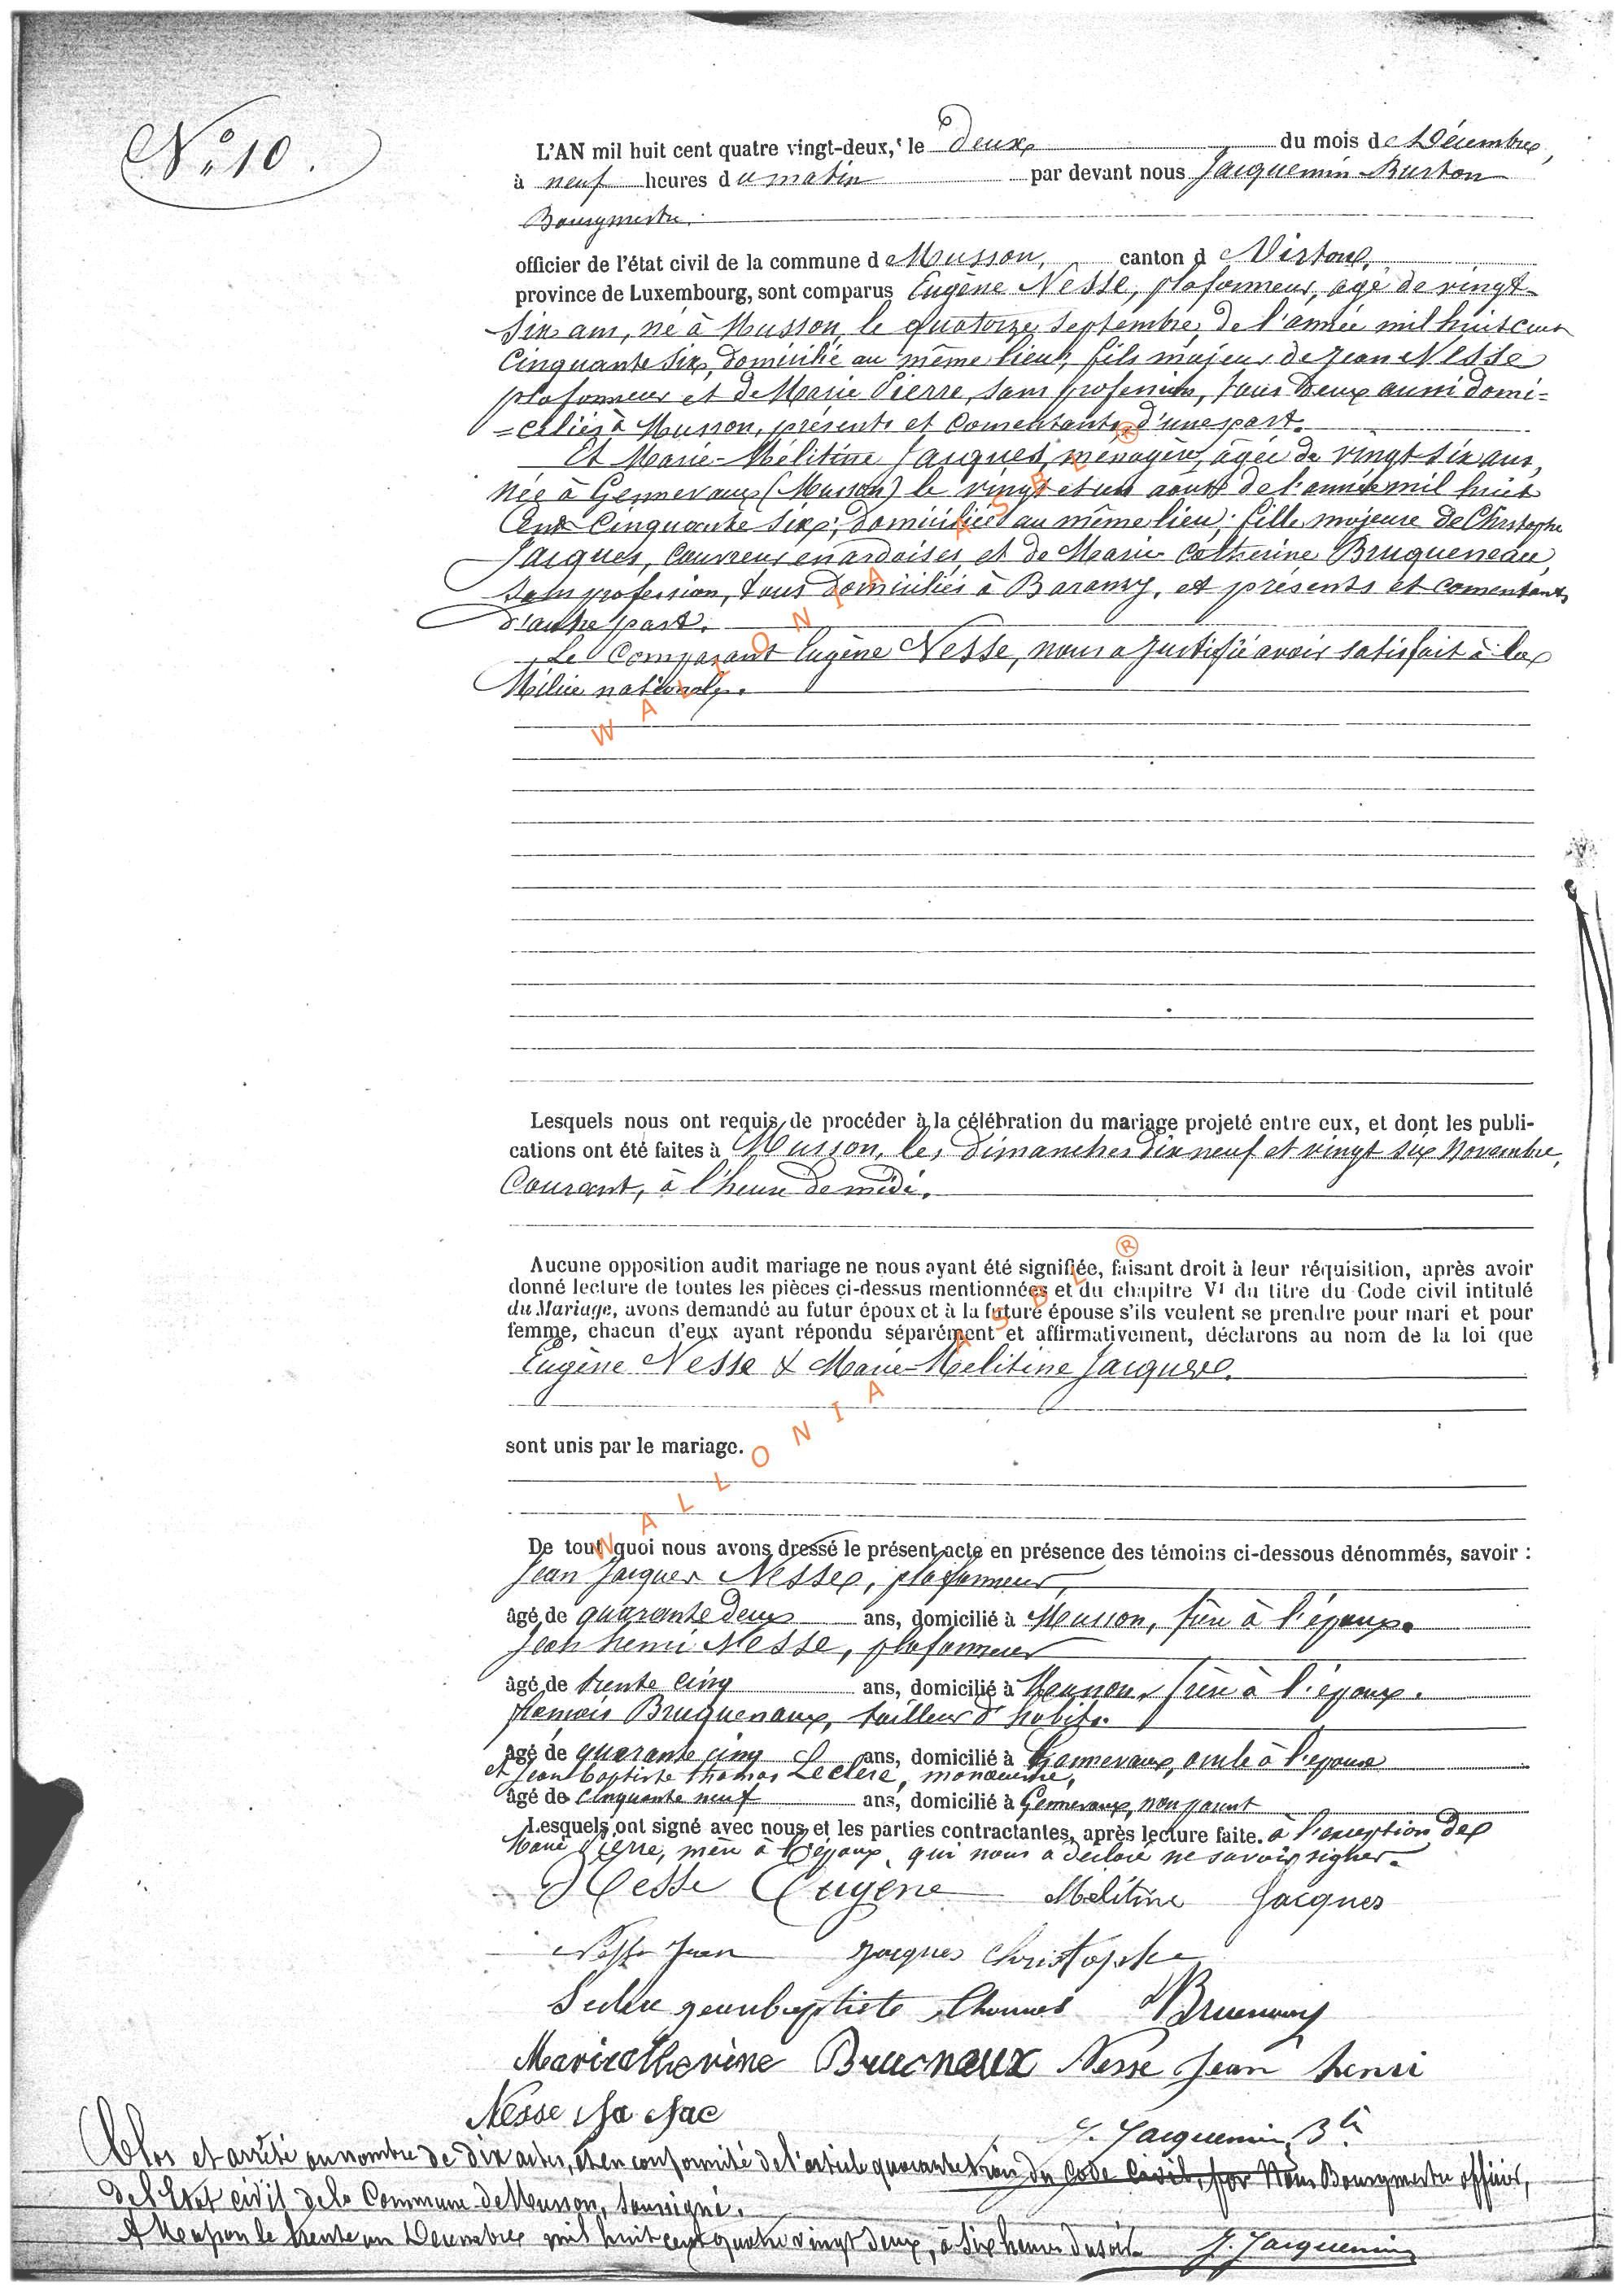 N.° 10.
L'AN mil huit cent quatre vingt-deux, le deux du mois de Décembre,
à neuf heures du matin par devant nous Jacquemin-Burton
Bourgmestre.
officier de l'état civil de la commune d Musson, canton d Virton,
province de Luxembourg, sont comparus Eugène Nesse, plafonneur, agé de vingt-
six ans, né à Musson, le quatorze Septembre, de l'année mil huit cent
Cinquante six, domicilié au même lieu, fils majeur de Jean Nesse
plafonneur et de Marie Pierre, sans profession, tous deux aussi domi=
=ciliés à Musson, présents et consentants d'une part.
Et Marie-Mélitine Jacques, ménagère, âgée de vingt six ans,
née à Gennevaux (Musson) le vingt et un août de l'année mil huit
Cent Cinquante six; domiciliée au même lieu; fille majeure de Christophe
Jacques, couvreur en ardoises, et de Marie Catherine Bruqueneau,
sans profession, tous domiciliés à Baranzy, et présents et consentants
d'autre part.
Le Comparant Eugène Nesse, nous a justifié avoir satisfait à la
Milice nationale.
Lesquels nous ont requis de procéder à la célébration du mariage projeté entre eux, et dont les publi-
cations ont été faites à Musson, les dimanches dix neuf et vingt six Novembre,
Courant, à l'heure de midi.
Aucune opposition audit mariage ne nous ayant été signifiée, faisant droit à leur réquisition, après avoir
donné lecture de toutes les pièces ci-dessus mentionnées et du chapitre VI du titre du Code civil intitulé
du Mariage, avons demandé au futur époux et à la future épouse s'ils veulent se prendre pour mari et pour
femme, chacun d'eux ayant répondu séparément et affirmativement, déclarons au nom de la loi que
Eugène Nesse & Marie-Melitine Jacques.
sont unis par le mariage.
De tout quoi nous avons dressé le présent acte en présence des témoins ci-dessous dénommés, savoir :
Jean Jacques Nesse, plafonneur,
âgé de quarante deux ans, domicilié à Musson, frère à l'époux.
Jean henri Nesse, plafonneur
âgé de trente cinq ans, domicilié à Musson, frère à l'époux.
François Bruquenaux, tailleur d'habits.
âgé de quarante cinq ans, domicilié à Gennevaux, oncle à l'épouse
et Jean baptiste thomas Leclere, manoeuvre,
âgé de cinquante neuf ans, domicilié à Gennevaux, non parent
Lesquels ont signé avec nous et les parties contractantes, après lecture faite. à l'exception de
Marie Pierre, mère à l'époux, qui nous a déclaré ne savoir signer.
Nesse Eugène Mélitine Jacques
Nesse Jean Jacques Christophe
jeanbaptiste thomas
Mariecatherine Brucneux Nesse Jean henri
Nesse Ja Jac J. Jacquemin Bt
Clos et arrêté au nombre de dix actes, et en conformité de l'article quarante trois du Code Civil, par Nous Bourgmestre officier,
de l'Etat civil de la Commune de Musson, soussigné.
A Musson le trente un Décembre mil huit cent quatre vingt deux, à six heures du soir. J. Jacquemin
WALLONIA ASBL ®
WALLONIA ASBL ®